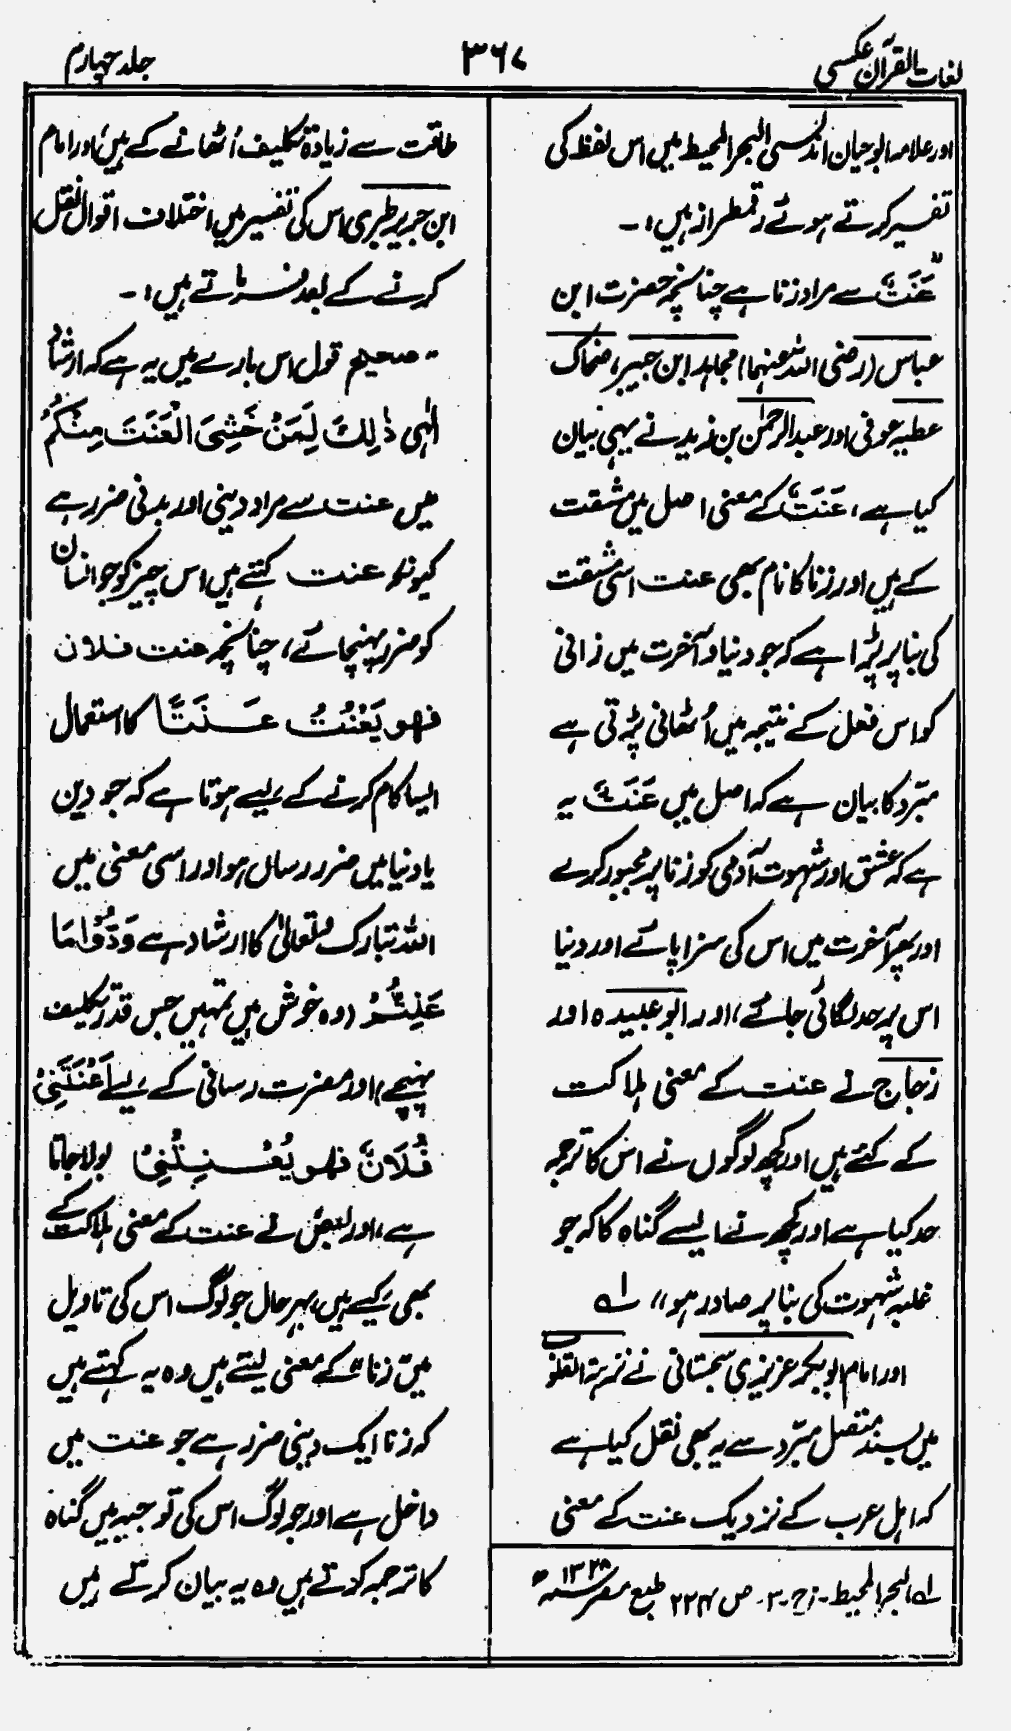 لغات القرآن عکسی
۳۶۷
جلد چہارم
اور علامہ ابوحیان اندلسی البحر المحیط میں اس لفظ کی
تفسیر کرتے ہوئے رقمطراز ہیں :۔
"عَنَتٌ سے مراد زنا ہے چنانچہ حضرت ابن
عباس (رضی اللہ عنہما) مجاہد ابن جبیر، ضحاک
عطیہ عوفی اور عبدالرحمٰن بن زید نے یہی بیان
کیا ہے، عَنَتٌ کے معنی اصل میں مشقت
کے ہیں اور زنا کا نام بھی عنت اسی مشقت
کی بنا پر پڑا ہے کہ جو دنیا و آخرت میں زانی
کو اس فعل کے نتیجہ میں اُٹھانی پڑتی ہے
مبرّد کا بیان ہے کہ اصل میں عَنَتٌ یہ
ہے کہ عشق اور شہوت آدمی کو زنا پر مجبور کرے
اور پھر آخرت میں اس کی سزا پائے اور دنیا
اس پر حد لگائی جائے، اور ابو عبیدہ اور
زجاج نے عنت کے معنی ہلاکت
کے کئے ہیں اور کچھ لوگوں نے اس کا ترجمہ
حد کیا ہے اور کچھ نے ایسے گناہ کا کہ جو
غلبہ شہوت کی بنا پر صادر ہو" لے
اور امام ابوبکر عزیزی سجستانی نے نزہۃ القلوب
میں بسند متصل مبرّد سے یہ بھی نقل کیا ہے
کہ اہل عرب کے نزدیک عنت کے معنی
لے البحر المحیط۔ ج۔ ۳۔ ص ۲۲۴ طبع مصر ۱۳۲۸ھ
طاقت سے زیادہ تکلیف اُٹھانے کے ہیں، اور امام
ابن جریر طبری اس کی تفسیر میں اختلاف اقوال نقل
کرنے کے بعد فرماتے ہیں :۔
"صحیح قول اس بارے میں یہ ہے کہ ارشاد
الٰہی ذٰلِكَ لِمَنْ خَشِيَ الْعَنَتَ مِنْكُمْ
میں عنت سے مراد دینی اور بدنی ضرر ہے
کیونکہ عنت کہتے ہیں اس چیز کو جو انسان
کو ضرر پہنچائے، چنانچہ عنت فلان
فهو يَعْنَتُ عَنَتًا کا استعمال
ایسا کام کرنے کے لیے ہوتا ہے کہ جو دین
یا دنیا میں ضرر رساں ہو اور اسی معنی میں
اللہ تبارک و تعالیٰ کا ارشاد ہے وَدُّوْا مَا
عَنِتُّمْ (وہ خوش ہیں تمہیں جس قدر تکلیف
پہنچے) اور مضرت رسانی کے لیے اَعْنَتَنِيْ
فُلَانٌ فهو يُعْنِتُنِيْ بولا جاتا
ہے، اور بعض نے عنت کے معنی ہلاکت کے
بھی کیے ہیں، بہر حال جو لوگ اس کی تاویل
میں زنا کے معنی لیتے ہیں وہ یہ کہتے ہیں
کہ زنا ایک دینی ضرر ہے جو عنت میں
داخل ہے اور جو لوگ اس کی توجیہ میں گناہ
کا ترجمہ کرتے ہیں وہ یہ بیان کرتے ہیں